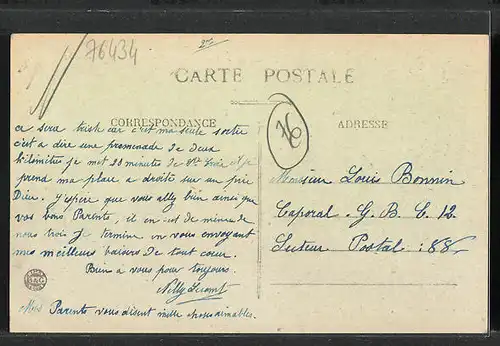 76434
CARTE POSTALE
CORRESPONDANCE
ADRESSE
76
ce sera triste car c'est ma seule sortie
c'est a dire une promenade de Deux
kilomètres je met 20 minutes de
prend ma place a droite sur un prie
Dieu. J'espère que vous allez bien ainsi que
vos bons Parents, il en est de même de
nous trois Je termine en vous envoyant
mes meilleurs baisers de tout cœur.
Bien a vous pour toujours.
Nelly
Mes Parents vous disent mille choses aimables.
Monsieur Louis Bonnin
Caporal. G. B. C. 12
Secteur Postal : 88